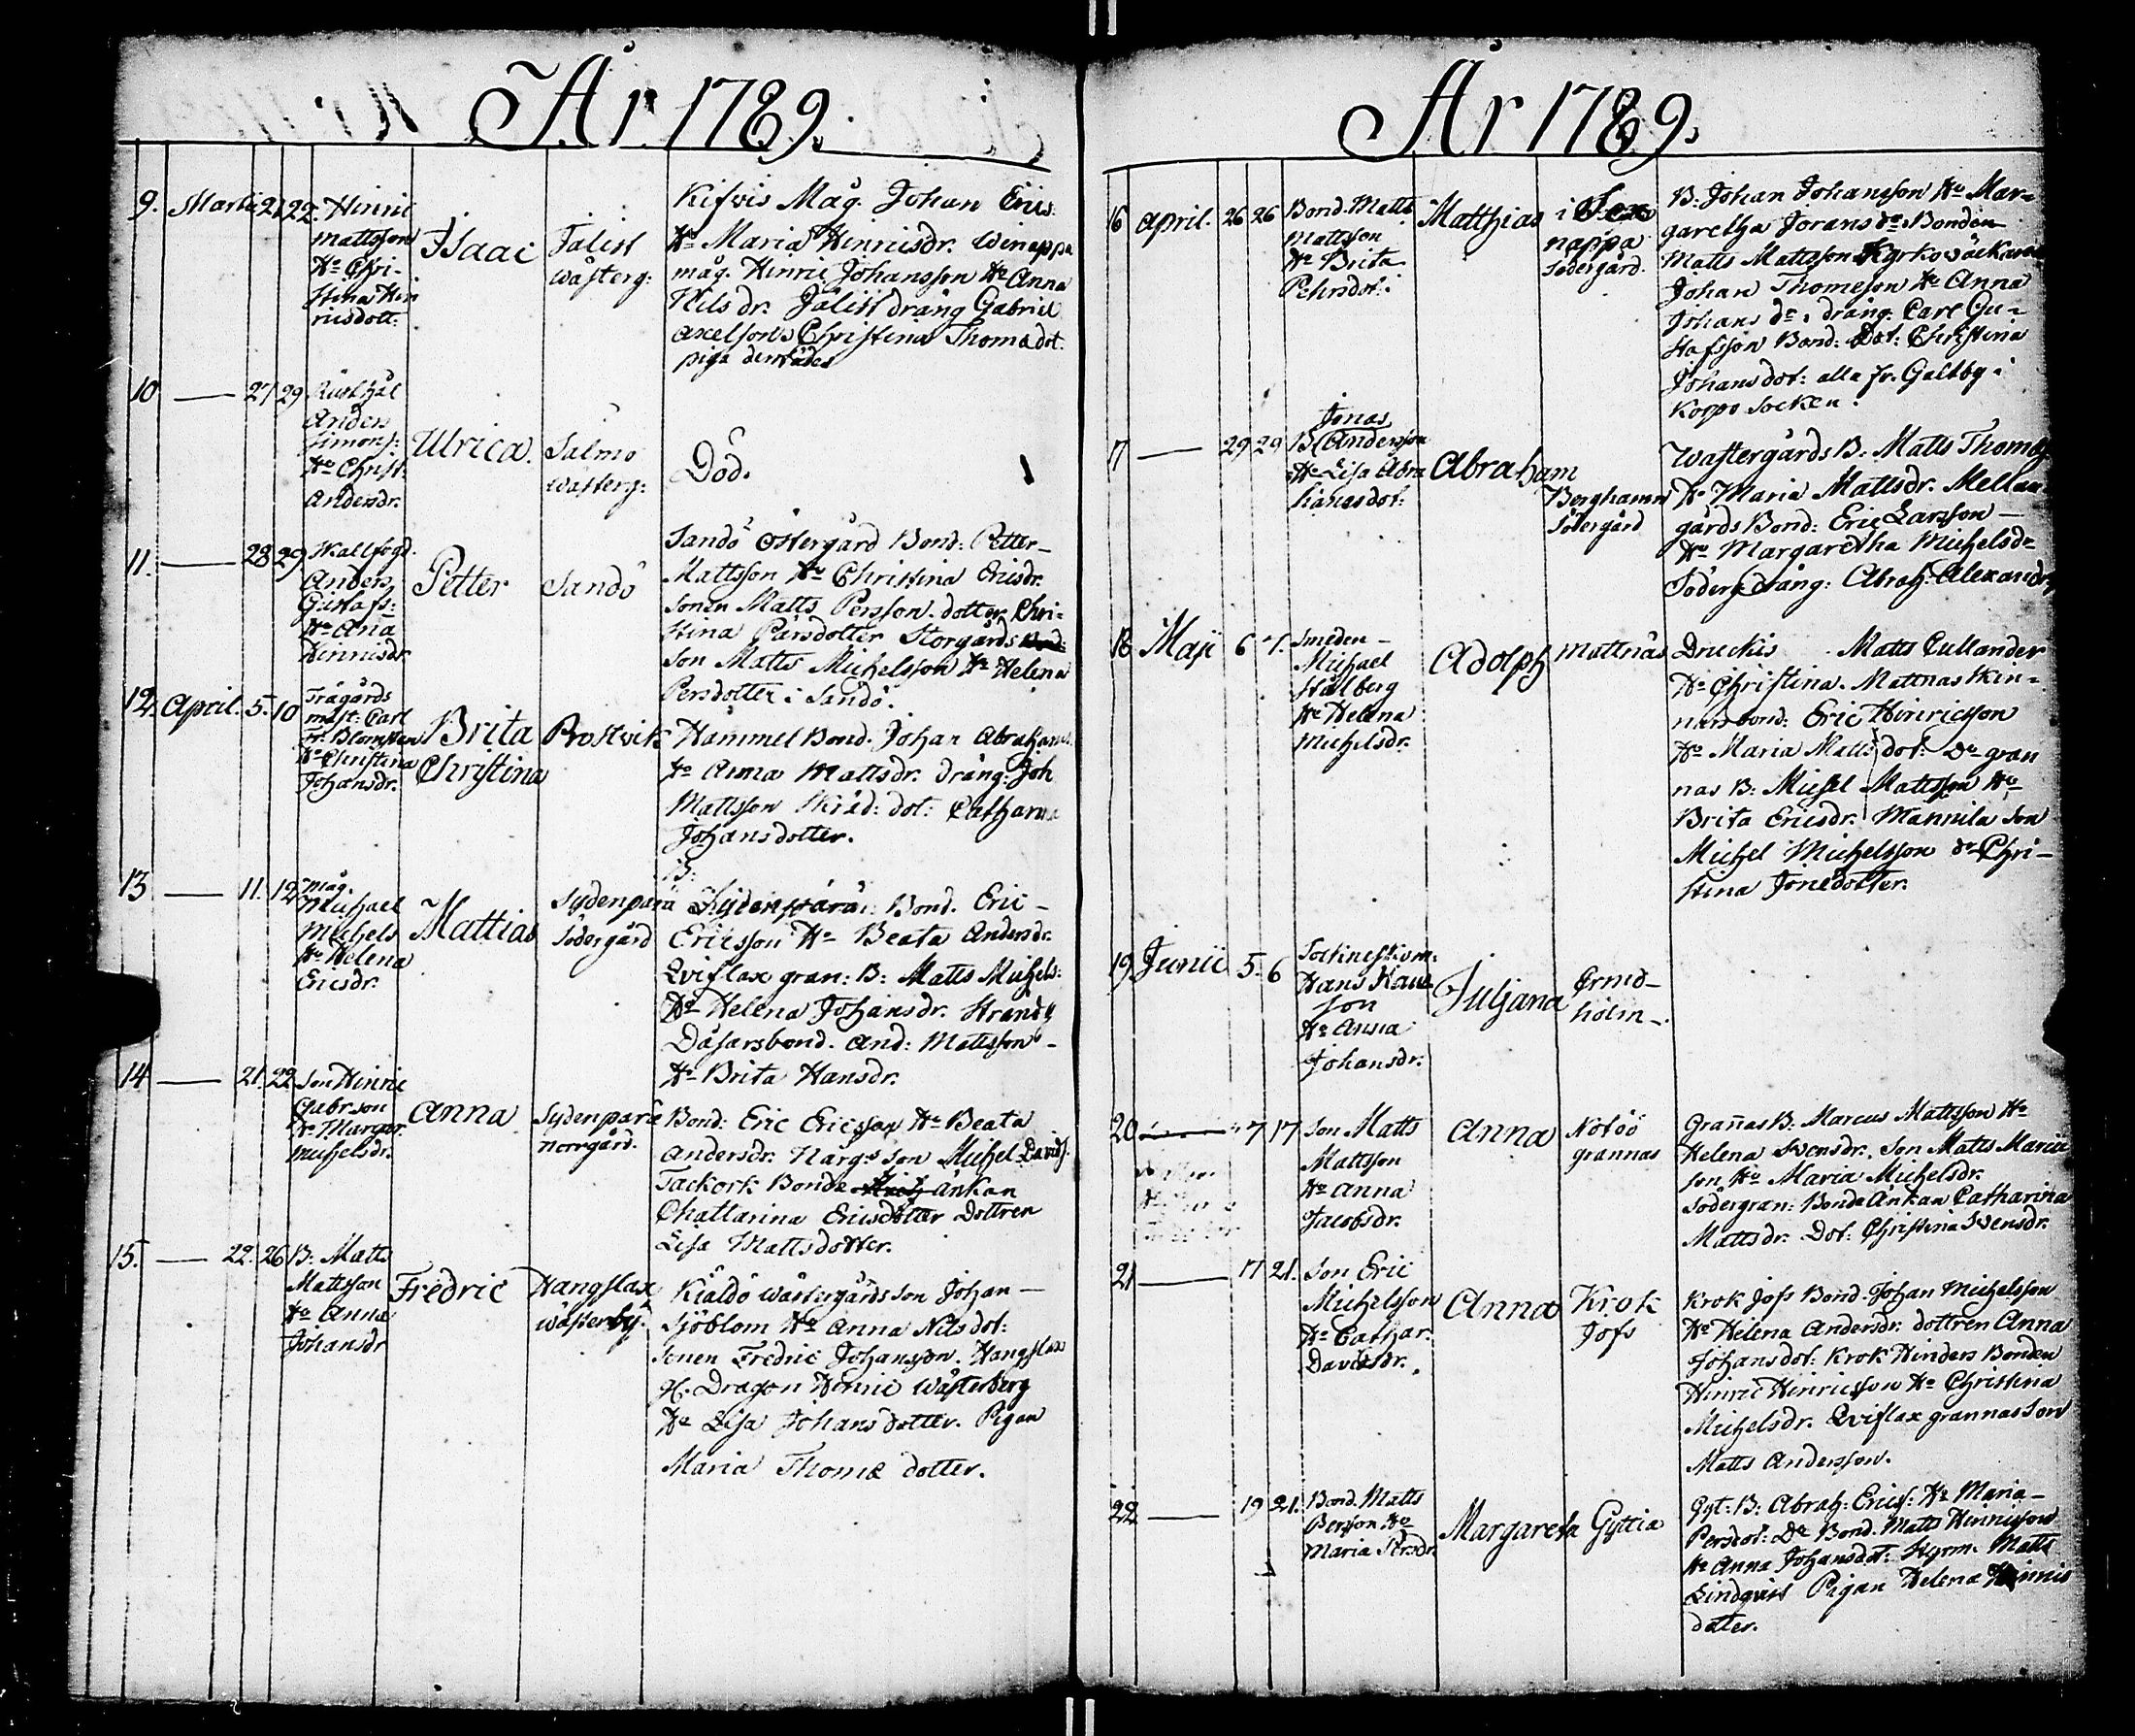 År 1789.
9. Martii 21 22. Hinric
Mattsson
Hu Chri-
stina Hin
ricsdott:
Isaac
Jälist
wästerg:
Kifvis Måg. Johan Erics:
Hu Maria Hinricsdr. Winappa
måg. Hinric Johansson Hu Anna
Nilsdr. Jälist dräng Gabriel
Axelson Christina Thomadot:
piga
10 — 27 29
Anders
Simons:
Hu Christ:
Andersdr.
Ulrica.
Salmo
wästerg:
Död.
11. — 28 29 Skallfogd.
Anders
Gustafs:
Hu Ana
Hinricsdr
Petter
Sandö
Sandö Östergård Bond: Petter
Mattsson Hu Christina Ericsdr.
sonen Matts Persson. dotter Chri-
stina Pärsdotter Storgårds
son Matts Michelsson Hu Helena
Persdotter i Sandö.
12. April. 5. 10 Trägårds
mäst: Carl
Fr. Blomsten
Hu Christina
Johansdr.
Brita
Christina
Prostvik
Hammel Bond. Johan Abrahams
Hu Anna Mattsdr. dräng: Joh
Mattsson Skräd: dot: Catharina
Johansdotter.
13 — 11. 12 Måg.
Michael
Michels
Hu Helena
Ericsdr.
Mattias
Sydenperä
Södergård
B:
Sydenperä: Bond. Eric
Ericsson Hu Beata Andersdr.
Qviflax gran: B: Matts Michels:
Hu Helena Johansdr. Strand
bond. And: Mattsson
Hu Brita Hansdr.
14 — 21. 22 Son Hinric
Gabrson
Hu Margar.
Michelsdr.
Anna
Sydenperä
norrgård.
Bond: Eric Ericsson Hu Beata
Andersdr. Narg: son Michel Davids.
Tackork Bonde Änkan
Chattarina Ericsdotter Dottren
Lisa Mattsdotter.
15. — 22. 26 B: Matts
Mattsson
Hu Anna
Johansdr
Fredric
Hangslax
wästerby.
Kiäldö wästergårds son Johan
Sjöblom Hu Anna Nilsdot:
Sonen Fredric Johansson. Hangslax
Dragon Hinric Wästerberg
Hu Lisa Johansdotter. Pigan
Maria Thomæ dotter.
År 1789.
16 April. 26 26 Bond. Matts
Mattsson
Hu Brita
Pehrsdot:
Matthias
i
nappa
Södergård.
B: Johan Johansson Hu Mar-
garetha Joransdr Bonden
Matts Mattsson Kyrkowäcktaren
Johan Thomeson Hu Anna
Johansdr. dräng: Carl Gu-
stafsson Bond: Dot: Christina
Johansdot: alla fr. Galtby i
Korpo Socken.
17 — 29 29 Jonas
B Andersson
Hu Lisa Abra
hamsdot:
Abraham
Berghamn
Södergård
Wästergårds B. Matts Thomes
Hu Maria Mattsdr. Mellan
gårds Bond: Eric Larsson
Hu Margaretha Michelsdr
Söderg: dräng: Abrah: Alexanders
18 Maji 6 7. Smeden
Michael
Stålberg
Hu Helena
Michelsdr.
Adolph
Mattnäs
Druckis Matts Cullander
Hu Christina. Mattnas Skin-
nars bond: Eric Hinricsson
Hu Maria Matts dot: Do gran
nas B: Michel Mattsson Hu
Brita Ericsdr. Mannila Son
Michel Michelsson do Chri-
stina Jonsdotter.
19 Junii 5. 6
Hans
son
Hu Anna
Johansdr.
Juliana
Ermo
holm
20 — 7 17 Son Matts
Mattsson
Hu Anna
Jacobsdr.
Anna
Nötöö
grannas
Grañas B. Marcus Mattsson Hu
Helena Svensdr. Son Matts Marcu
son Hu Maria Michelsdr.
Södergran: Bonde Änkan Catharina
Mattsdr. Dot: Christina Svensdr.
21 — 17 21. Son Eric
Michelsson
Hu Cathar:
Davidsdr.
Anna
Krok
Jofs
Krok Jofs Bond. Johan Michelsson
Hu Helena Andersdr. dottren Anna
Johansdot: Krok Hinders Bonden
Hinric Hinricsson Hu Christina
Michelsdr. Qviflax grannas Son
Matts Andersson.
22 — 19 21. Bond. Matts
Persson Hu
Maria
Margareta
Gyttia
Gyt: B: Abrah: Erics: Hu Maria
Persdot: Do Bond. Matts Hinricsson
Hu Anna Johansdot: Matts
Lindqvist Pigan Helena Hinrics
dotter.